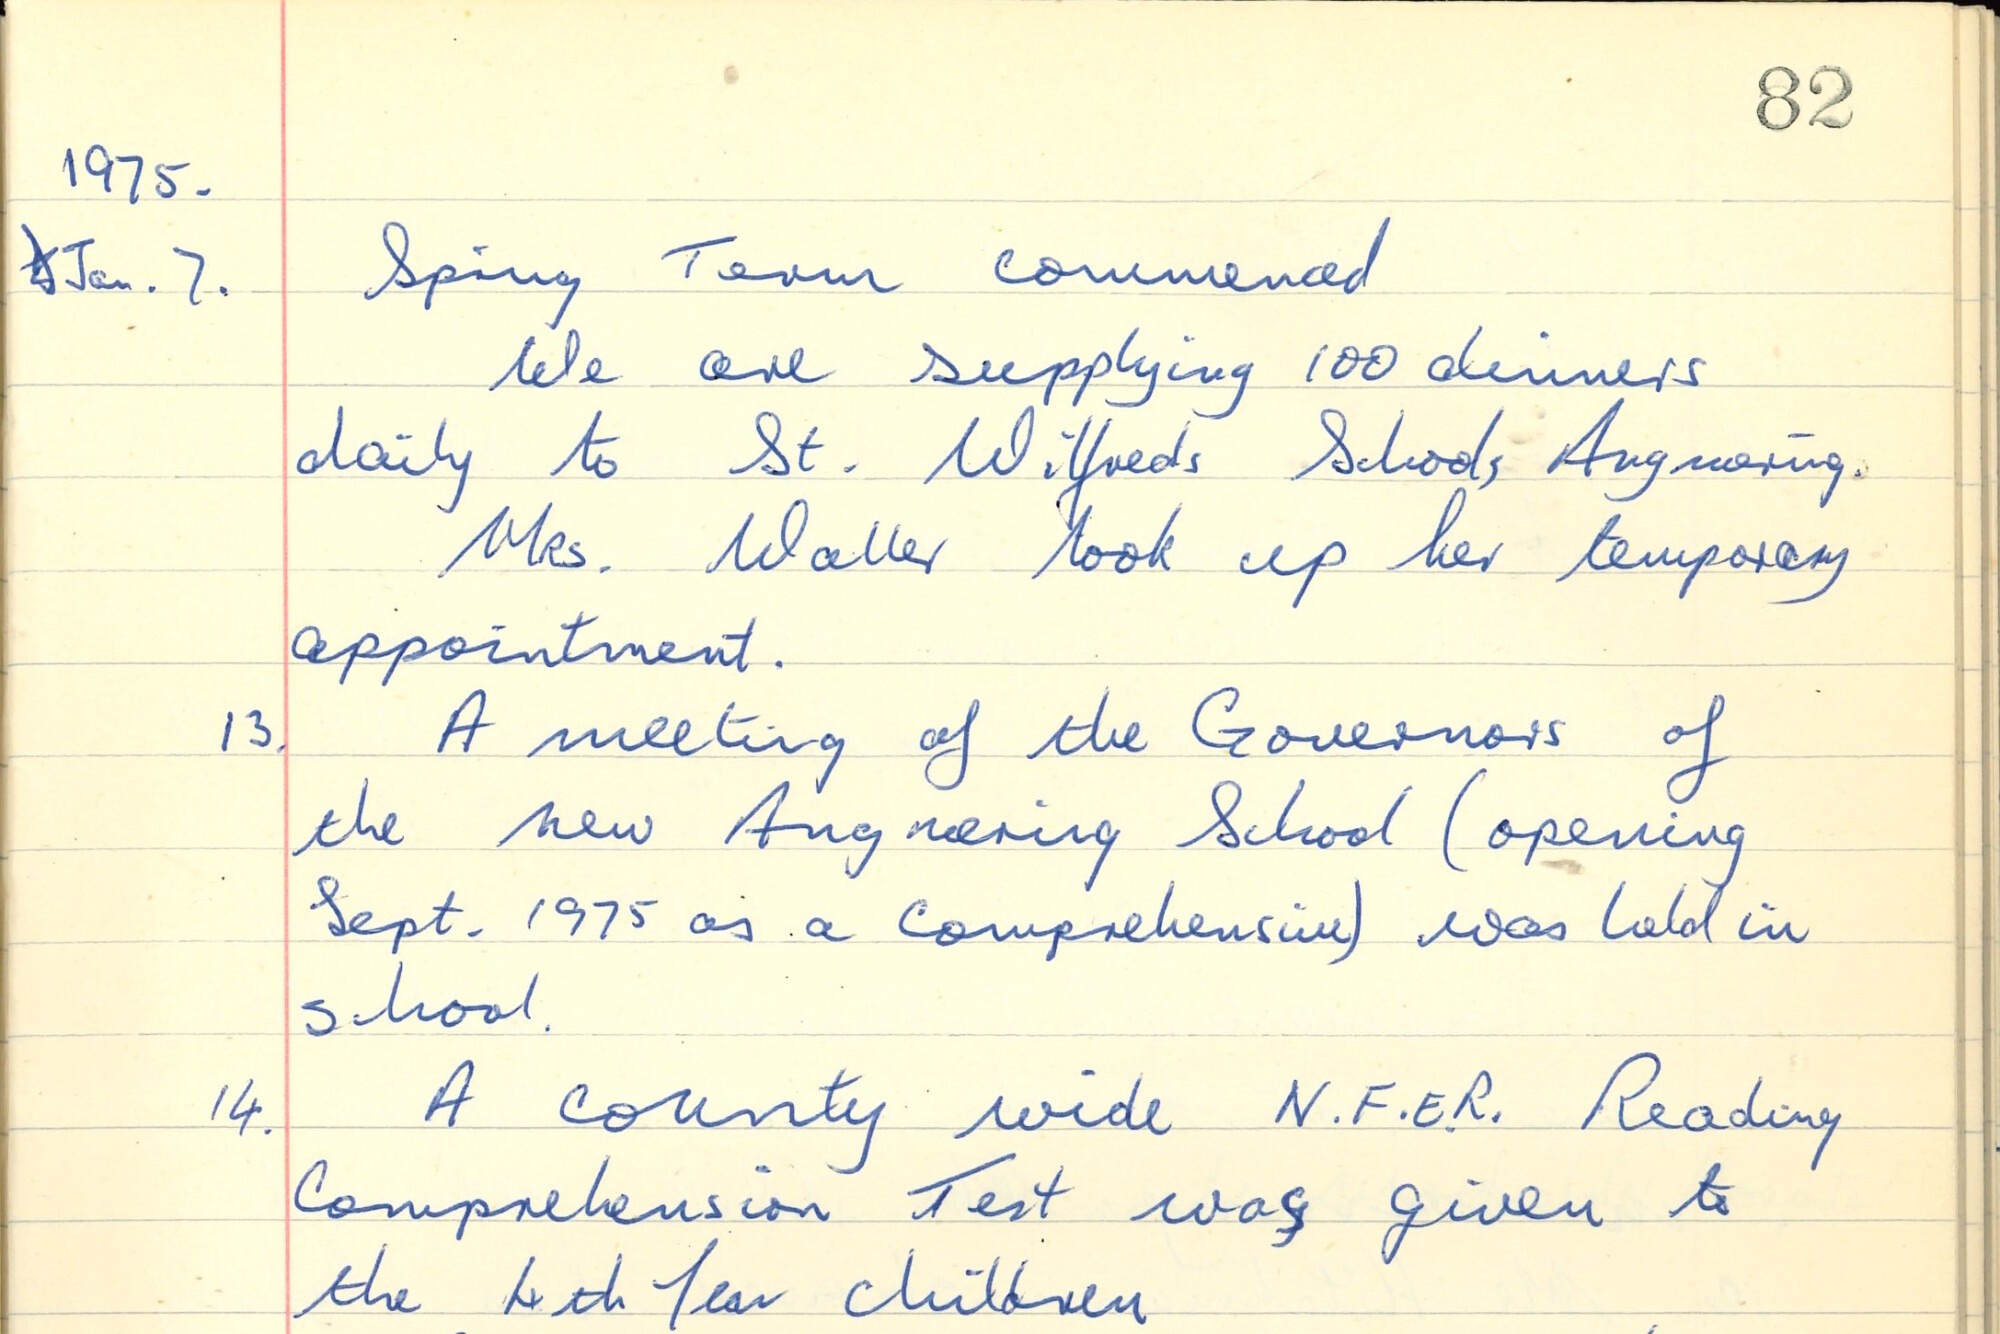 82
1975.
Jan. 7. Spring Term commenced
We are supplying 100 dinners
daily to St. Wilfreds School, Angmering.
Mrs. Waller took up her temporary
appointment.
13. A meeting of the Governors of
the new Angmering School (opening
Sept. 1975 as a Comprehensive) was held in
school.
14. A county wide N.F.E.R. Reading
Comprehension Test was given to
the 4th Year children